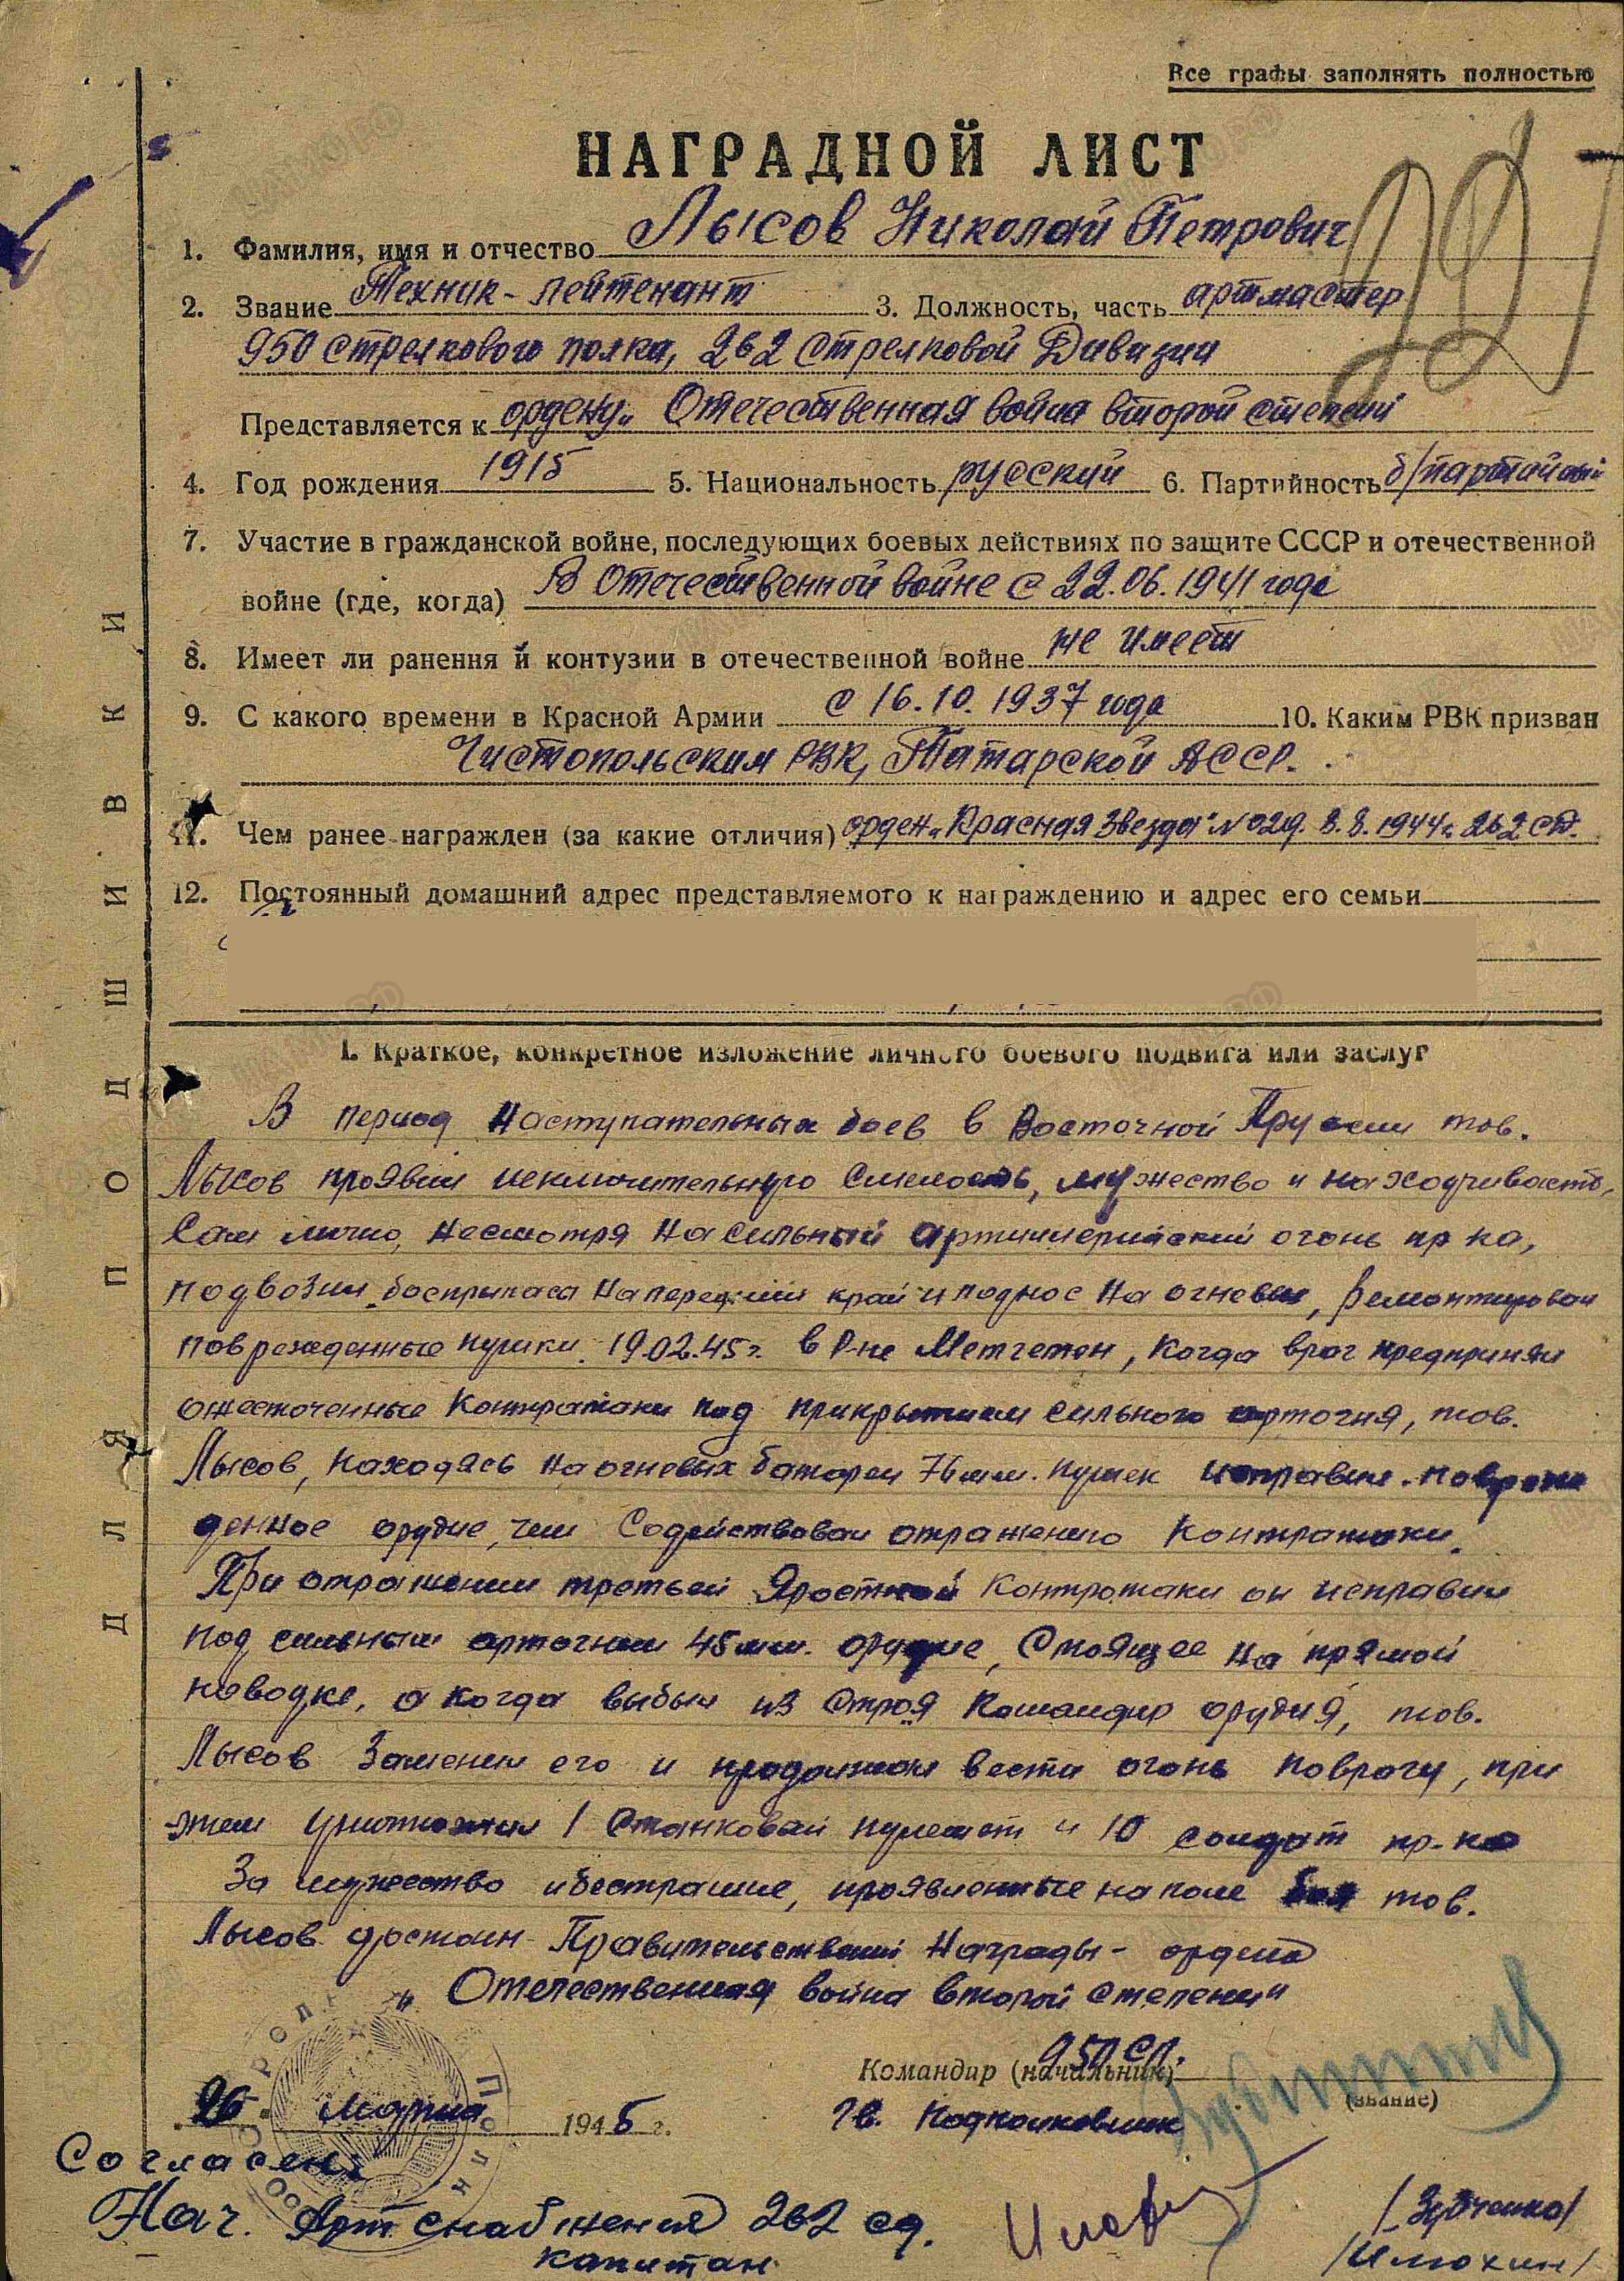 Все графы заполнять полностью
НАГРАДНОЙ ЛИСТ
1. Фамилия, имя и отчество Лысов Николай Петрович
2. Звание Техник-лейтенант 3. Должность, часть артмастер
950 стрелкового полка, 262 Стрелковой Дивизии
Представляется к ордену „Отечественная война второй степени
4. Год рождения 1915 5. Национальность русский 6. Партийность б/партийный
7. Участие в гражданской войне, последующих боевых действиях по защите СССР и отечественной
войне (где, когда) В Отечественной войне с 22.06.1941 года
8. Имеет ли ранения и контузии в отечественной войне не имеет
9. С какого времени в Красной Армии с 16.10.1937 года 10. Каким РВК призван
Чистопольским РВК, Татарской АССР.
11. Чем ранее награжден (за какие отличия) орден „Красная Звезда" № 029. 8.8.1944г. 262 СД.
12. Постоянный домашний адрес представляемого к награждению и адрес его семьи
I. Краткое, конкретное изложение личного боевого подвига или заслуг
В период наступательных боев в Восточной Пруссии тов.
Лысов проявил исключительную смелость, мужество и находчивость,
Сам лично, несмотря на сильный артиллерийский огонь пр-ка,
подвозил боеприпасы на передний край и поднос на огневые, ремонтировал
поврежденные пушки. 19.02.45г. в р-не Метгетен, когда враг предпринял
ожесточенные контратаки под прикрытием сильного артогня, тов.
Лысов, находясь на огневых батареи 76мм. пушек исправил повреж
денное орудие, чем содействовал отражению контратаки.
При отражении третьей яростной контратаки он исправил
под сильным артогнем 45мм. орудие, стоящее на прямой
наводке, а когда выбыл из строя командир орудия, тов.
Лысов заменил его и продолжал вести огонь по врагу, при
этом уничтожил 1 станковый пулемет и 10 солдат пр-ка
За мужество и бесстрашие, проявленные на поле боя тов.
Лысов достоин Правительственной Награды - ордена
„Отечественная война второй степени"
950 СП.
Командир (начальник)
(звание)
26 марта 1945 г.
Гв. Подполковник
Согласен:
Нач. Артснабжения 262 сд.
/Зубченко/
капитан
/Илюхин/
ДЛЯ ПОДШИВКИ